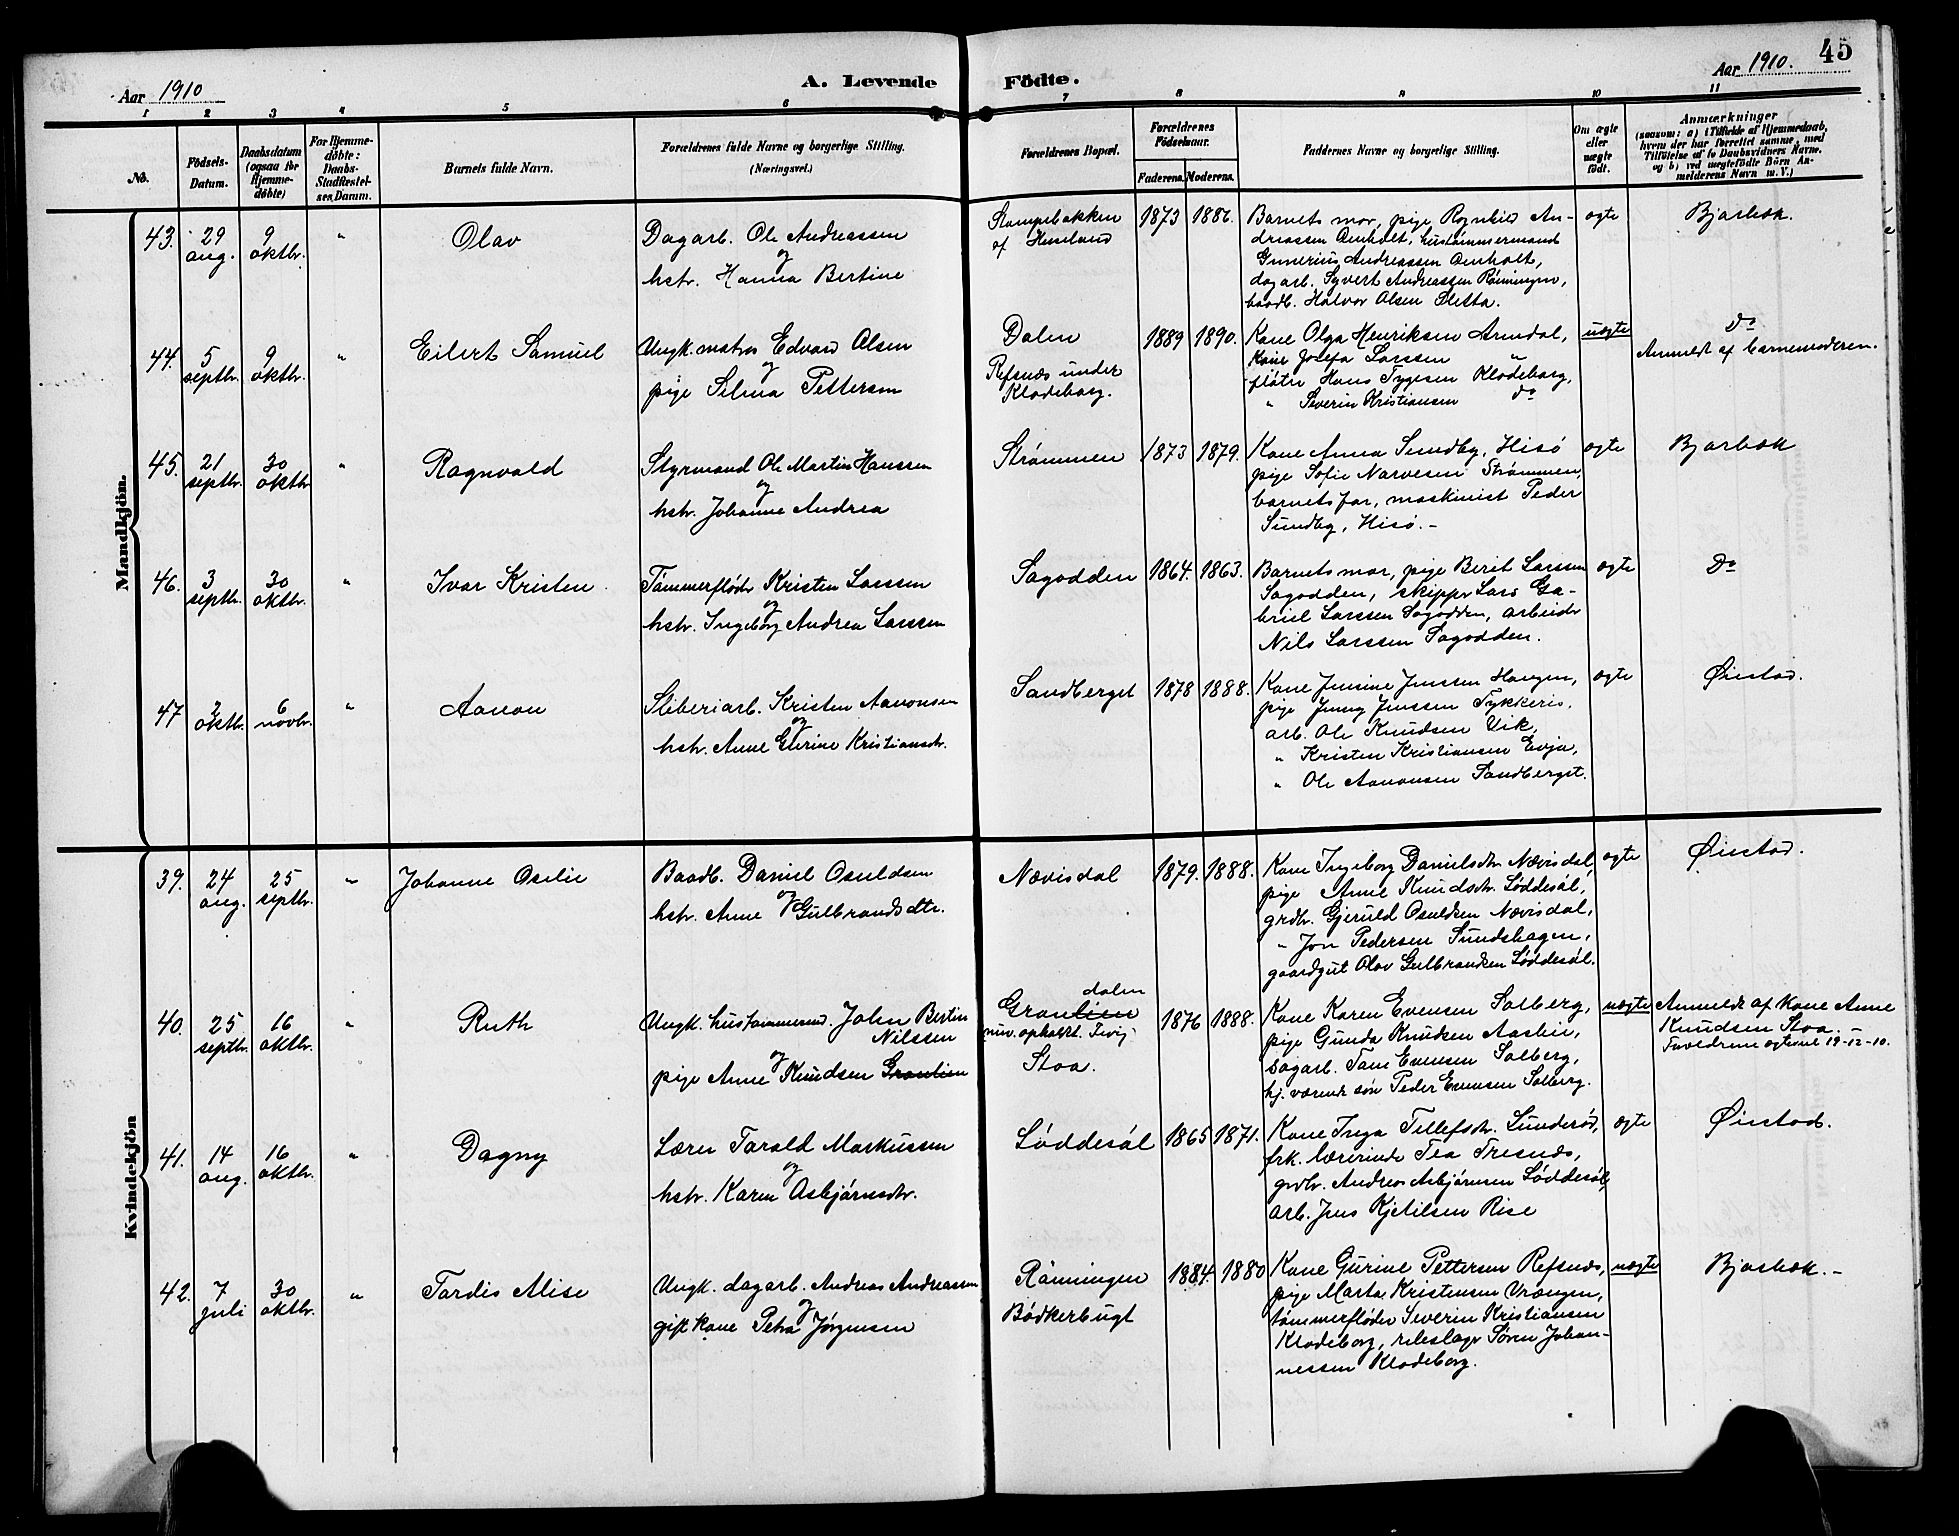 Aar 1910
A. Levende
Födte.
Aar 1910.
45
1 2 3 4 5 6 7 8 9 10 11
No.
Födsels-
Datum.
Daabsdatum
(ogsaa for
Hjemme-
døbte)
For Hjemme-
døbte:
Daabs-
Stadfæstel-
ses Datum.
Barnets fulde Navn.
Forældrenes fulde Navne og borgerlige Stilling.
(Næringsvei.)
Forældrenes Bopæl.
Forældrenes
Födselsaar.
Faderens. Moderens.
Faddernes Navne og borgerlige Stilling.
Om ægte
eller
uægte
født.
Anmærkninger
(saasom: a) i Tilfælde af Hjemmedaab,
hvem der har forrettet samme, med
Tilføielse af to Daabsvidners Navne,
og b) ved uægtefødte Börn An-
melderens Navn m. V.)
Mandkjön.
43. 29 aug. 9 oktbr. "
Olav
Dagarb. Ole Andreassen
og
hstr. Hanna Bertine
Stampebakken
af Huseland
1873 1886.
Barnets mor, pige Ragnhild An-
dreassen Aaholt, hustømmermand
Gunerius Andreassen Aaholt,
dagarb. Syvert Andreassen Rønningen,
baadb. Halvor Olsen Sletta.
ægte
Bjorbæk.
44. 5 septbr. 9 oktbr. "
Eilert Samuel
Ungk. matros Edvard Olsen
og
pige Selma Pettersen
Dalen
Refsnæs under
Klodeborg.
1889 1890.
Kone Olga Henriksen Arendal,
Kone Josefa Larssen "
fløter Hans Tygesen Klodeborg,
" Severin Kristiansen do
uægte
do
Anmeldt af barnemoderen.
45. 21 septbr. 30 oktbr. "
Ragnvald
Styrmand Ole Martin Hanssen
og
hstr. Johanne Andrea
Strømmen
1873 1879.
Kone Anna Sundby, Hisø
pige Sofie Narvesen Strømmen,
barnets far, maskinist Peder
Sundby, Hisø.-
ægte
Bjorbæk
46. 3 septbr. 30 oktbr. "
Ivar Kristen.
Tømmerfløder Kristen Larssen
og
hstr. Ingeborg Andrea Larssen
Sagodden
1864. 1863.
Barnets mor, pige Berit Larssen
Sagodden, skipper Lars Ga-
briel Larssen Sagodden, arbeider
Nils Larssen Sagodden.
ægte
do
47 2 oktbr. 6 novbr. "
Aanon
Sliberiarb. Kristen Aanonsen
og
hstr. Anne Gurine Kristiansdtr.
Sandberget
1878 1888.
Kone Jensine Jenssen Haugen,
pige Jenny Jenssen Tykkeris,
arb. Ole Knudsen Vik,
" Kristen Kristiansen Evja,
" Ole Aanonsen Sandberget.
ægte
Øiestad.
Kvindekjön
39. 24 aug. 25 septbr. "
Johanne Oselie
Baadb. Daniel Osuldsen
og
hstr. Anne Gulbrandsdtr.
Nævisdal
1879. 1888.
Kone Ingeborg Danielsdtr. Nævisdal,
pige Anne Knudsdtr. Løddesøl,
grdbr. Gjeruld Osuldsen Nævisdal,
" Jon Pedersen Sundshagen,
gaardgut Olav Gulbrandsen Løddesøl.
ægte
Øiestad.
40. 25 septbr. 16 oktbr. "
Ruth
Ungk. hustømmermd. John Bertin
Nilssen
og
pige Anne Knudsen Granlien
dalen
Granlien
Stoa.
1876 1888.
Kone Karen Evensen Solberg,
pige Gunda Knudsen Aasbie,
sagarb. Tam Evensen Solberg,
hj. værende søn Peder Evensen Solberg.
uægte
Anmeldt af kone Anne
Knudsen Stoa.-
Forældrene ægteviet 19-12-10.
41. 14 aug. 16 oktbr. "
Dagny
Lærer Tarald Markussen
og
hstr. Karen Asbjørnsdtr.
Løddesøl
1865 1871.
Kone Inga Tellefsdtr. Lunderød,
frk. lærerinde Tea Tresnæs,
grdbr. Andreas Asbjørnsen Løddesøl,
arb. Jens Kjetilsen Rise
ægte
Øiestad.
42. 7 juli 30 oktbr. "
Tordis Alise
Ungk. dagarb. Andreas Andreassen
og
gift kone Petra Jørgensen
Rønningen
Bødkerbugt
1884. 1880
Kone Gurine Pettersen Refsnæs,
pige Marta Kristensen Vrængen,
tømmerfløder Severin Kristiansen
Klodeborg, rebslager Søren Johan-
nessen Klodeborg.
uægte
Bjorbæk.-